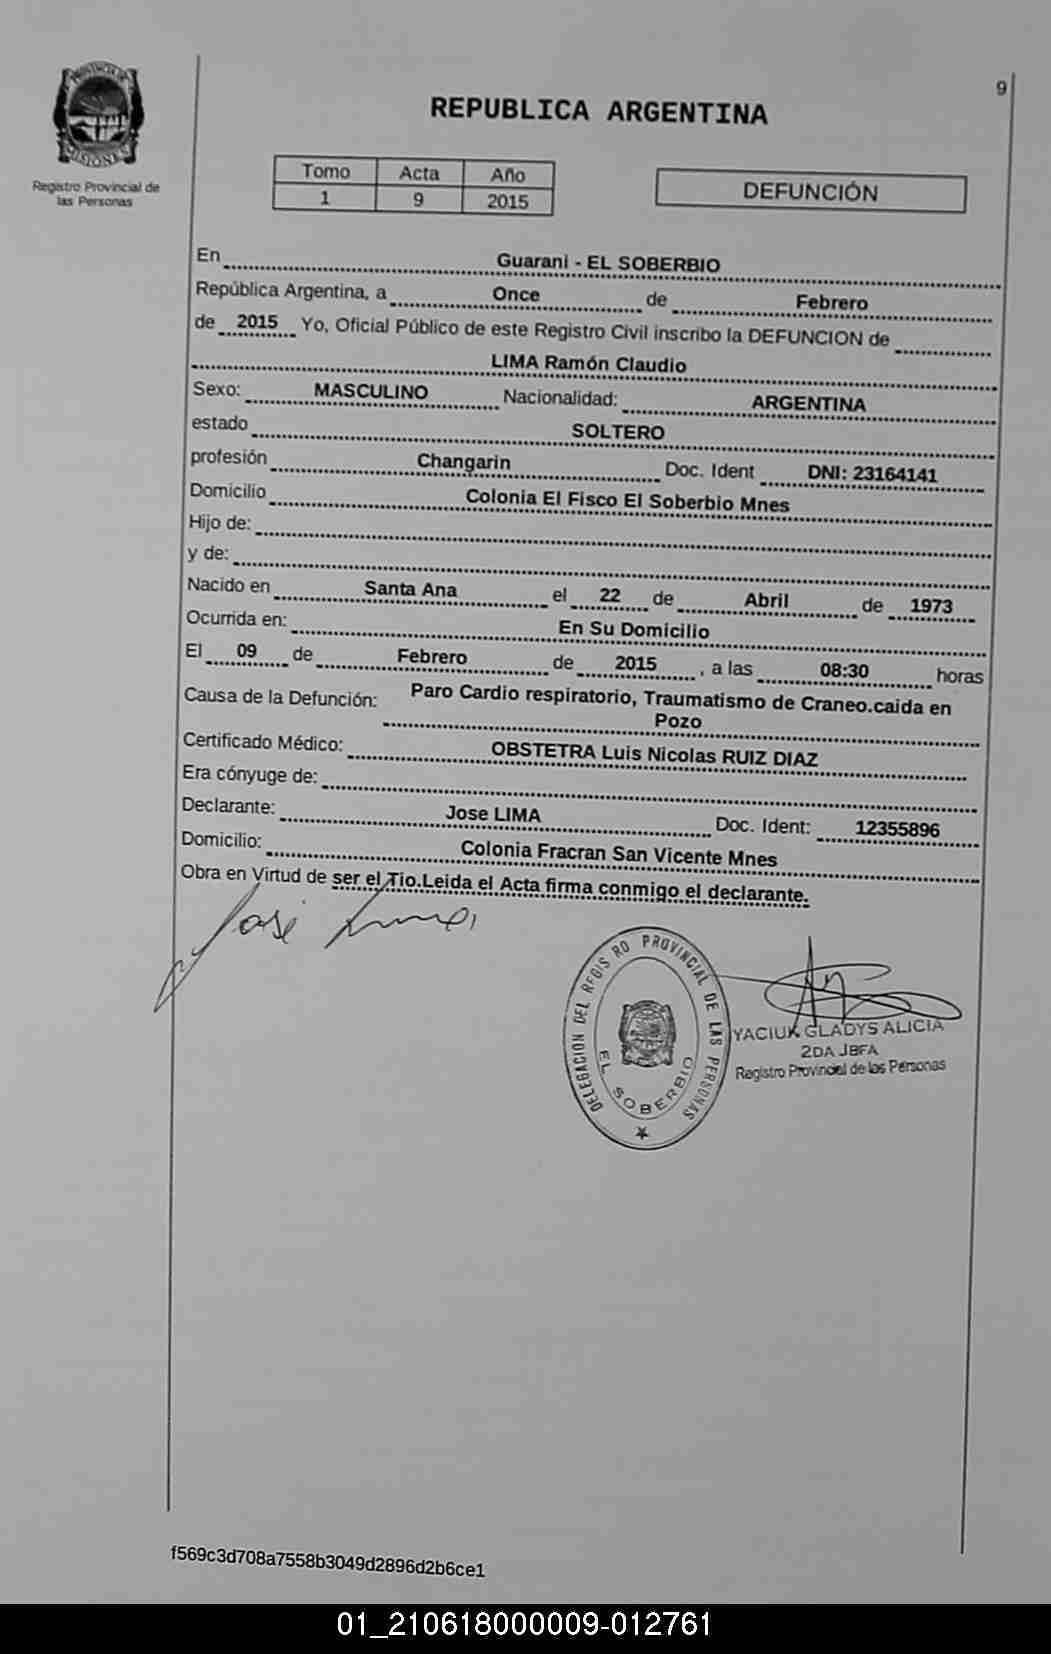 9
PROVINCIA DE
MISIONES
Registro Provincial de
las Personas
REPUBLICA ARGENTINA
Tomo Acta Año
1 9 2015
DEFUNCIÓN
En Guarani - EL SOBERBIO
República Argentina, a Once de Febrero
de 2015 Yo, Oficial Público de este Registro Civil inscribo la DEFUNCION de
LIMA Ramón Claudio
Sexo: MASCULINO Nacionalidad: ARGENTINA
estado SOLTERO
profesión Changarin Doc. Ident DNI: 23164141
Domicilio Colonia El Fisco El Soberbio Mnes
Hijo de:
y de:
Nacido en Santa Ana el 22 de Abril de 1973
Ocurrida en: En Su Domicilio
El 09 de Febrero de 2015 , a las 08:30 horas
Causa de la Defunción: Paro Cardio respiratorio, Traumatismo de Craneo.caida en
Pozo
Certificado Médico: OBSTETRA Luis Nicolas RUIZ DIAZ
Era cónyuge de:
Declarante: Jose LIMA Doc. Ident: 12355896
Domicilio: Colonia Fracran San Vicente Mnes
Obra en Virtud de ser el Tio.Leida el Acta firma conmigo el declarante.
José Lima
DELEGACION DEL REGIS RO PROVINCIAL DE LAS PERSONAS
EL SOBERBIO
YACIUK GLADYS ALICIA
2DA JEFA
Registro Provincial de las Personas
f569c3d708a7558b3049d2896d2b6ce1
01_210618000009-012761